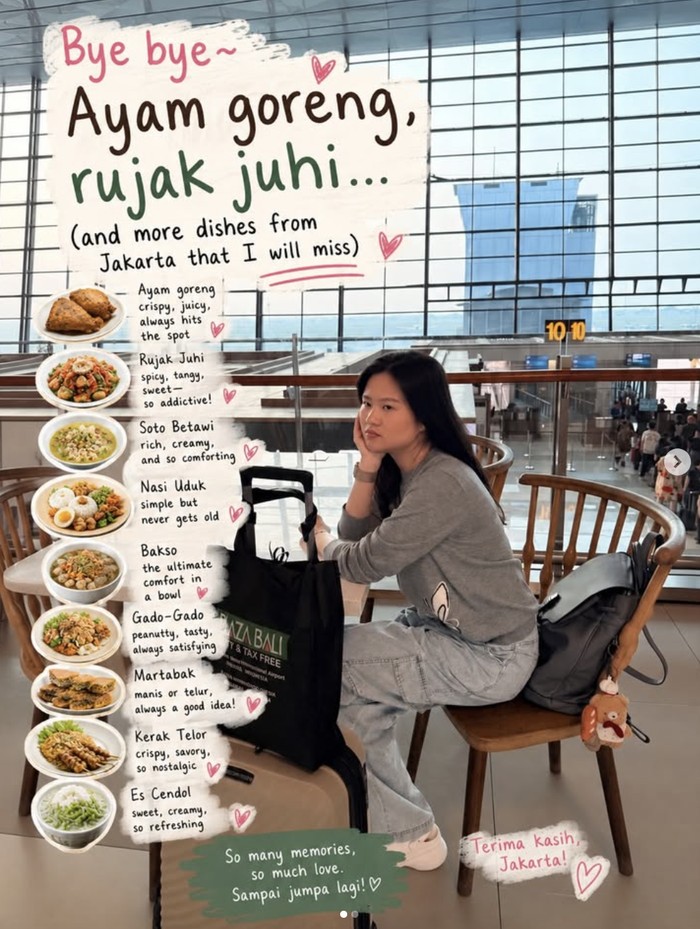 Bye bye~
Ayam goreng,
rujak juhi...
(and more dishes from
Jakarta that I will miss)
Ayam goreng
crispy, juicy,
always hits
the spot
Rujak Juhi
spicy, tangy,
sweet—
so addictive!
Soto Betawi
rich, creamy,
and so comforting
Nasi Uduk
simple but
never gets old
Bakso
the ultimate
comfort in
a bowl
Gado-Gado
peanutty, tasty,
always satisfying
Martabak
manis or telur,
always a good idea!
Kerak Telor
crispy, savory,
so nostalgic
Es Cendol
sweet, creamy,
so refreshing
10 10
AZA BALI
Y & TAX FREE
So many memories,
so much love.
Sampai jumpa lagi!
Terima kasih,
Jakarta!